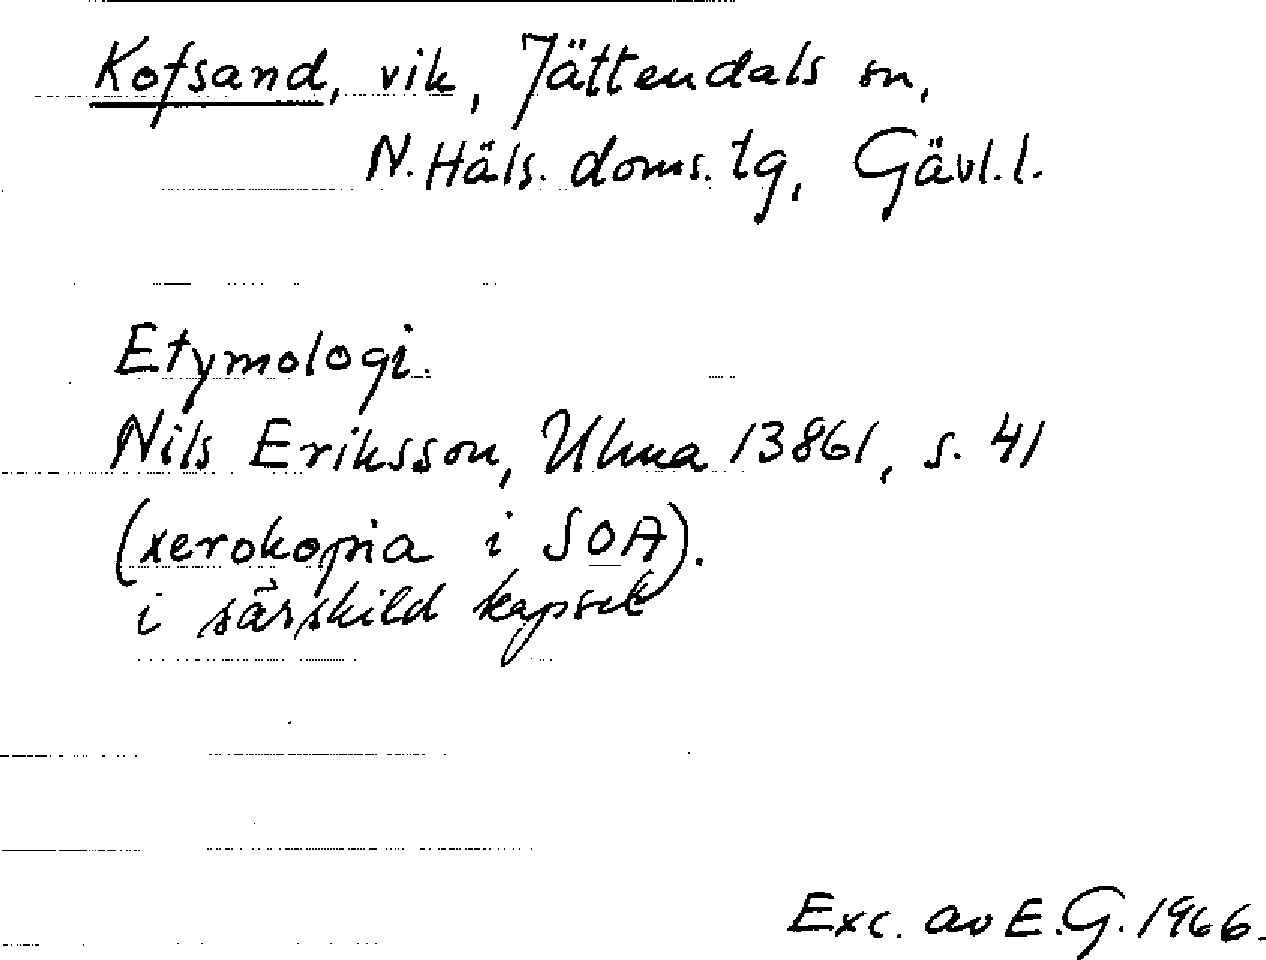 Kofsand, vik, Jättendals sn,
N. Häls. doms. tg, Gävl. l.
Etymologi.
Nils Eriksson, Ulma 13861, s. 41
(xerokopia i SOA).
i särskild kapsel
Exc. av E.G. 1966.